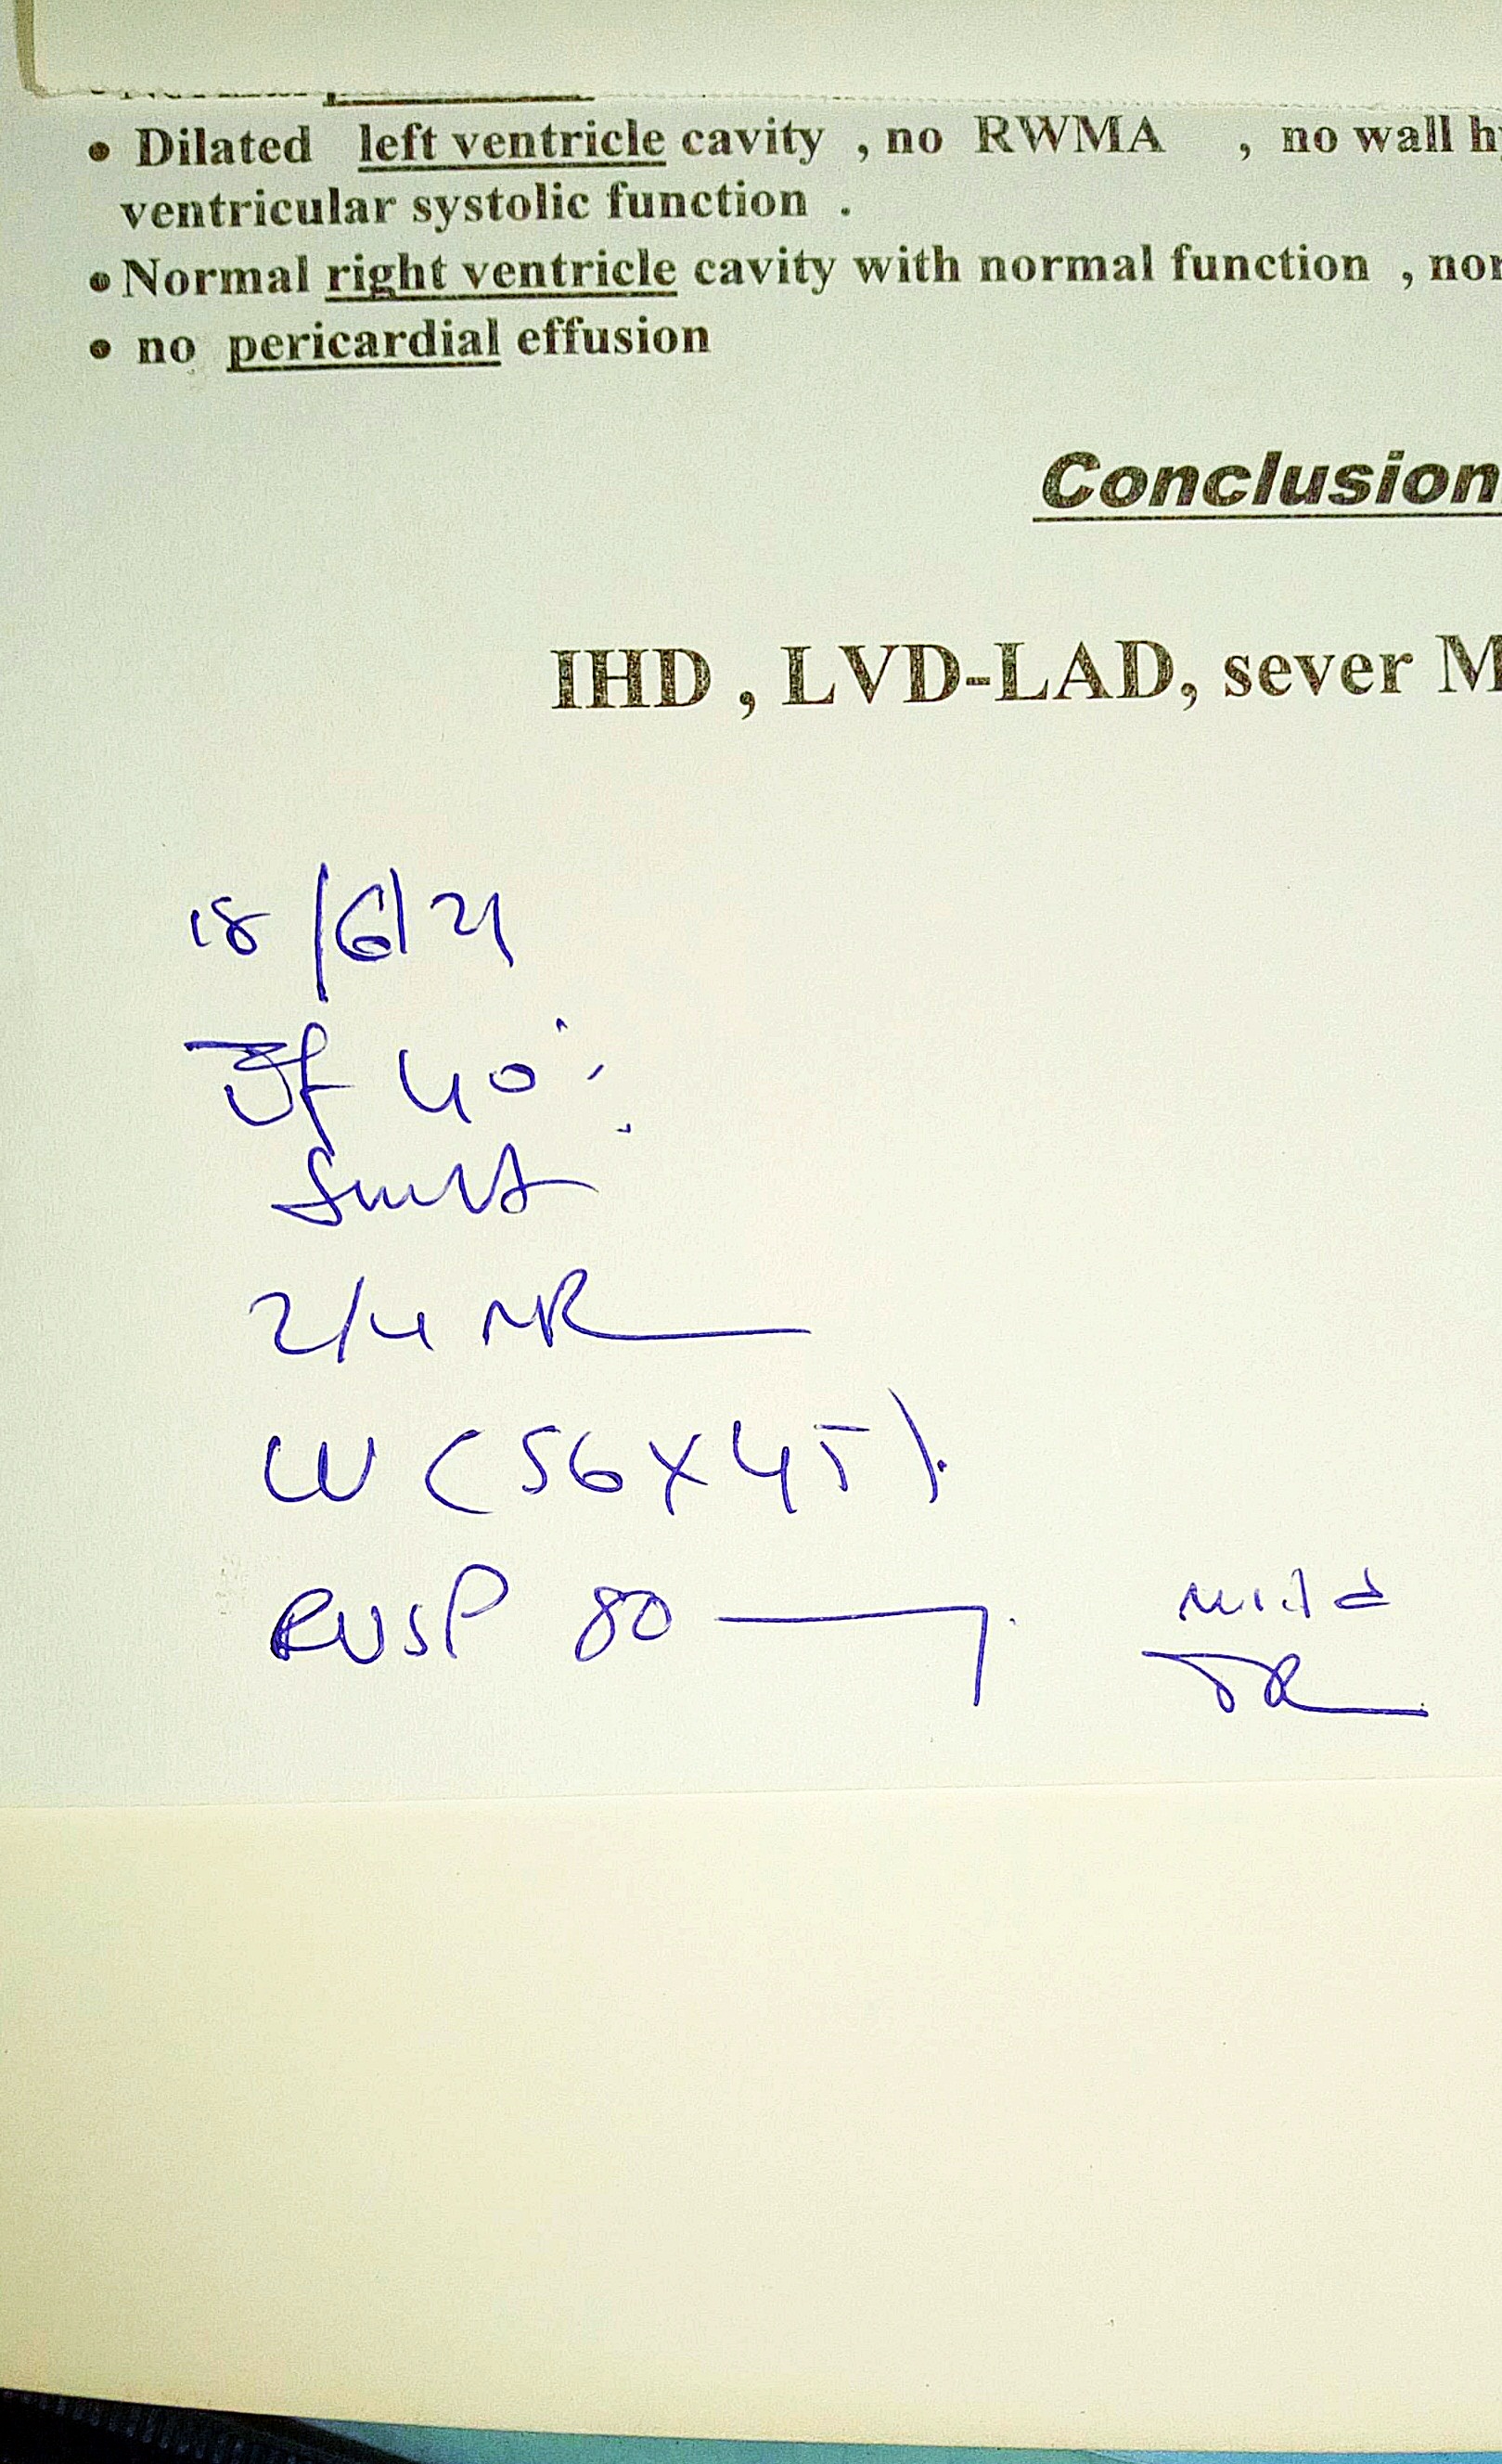 • Dilated left ventricle cavity , no RWMA , no wall h
ventricular systolic function .
• Normal right ventricle cavity with normal function , nor
• no pericardial effusion
Conclusion
IHD , LVD-LAD, sever M
18/6/21
Ef 40%
2/4 MR
LV (56 x 45).
RVSP 80
mild
TR